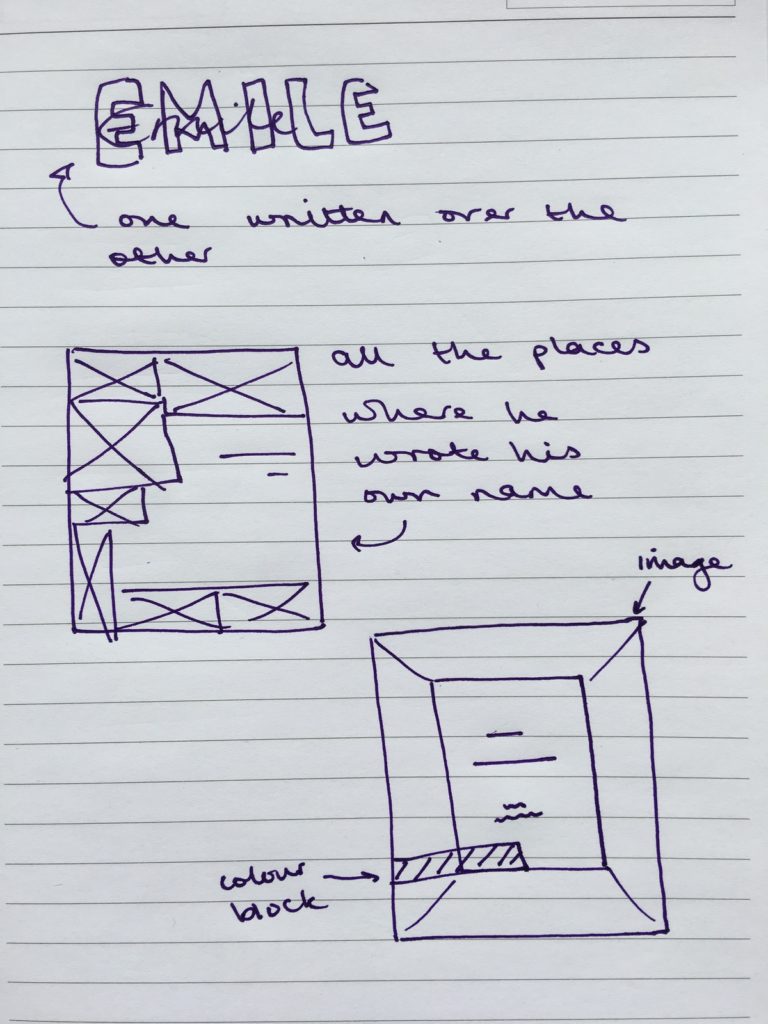 EMILE
Emile
one written over the
other
all the places
where he
wrote his
own name
image
colour
block